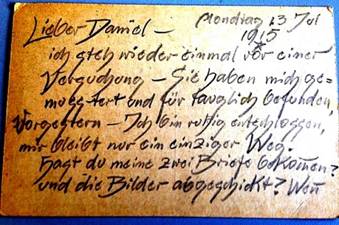 Lieber Daniel – Mondtag 13 Jul
1915
ich steh wieder einmal vor einer
Versuchung – Sie haben mich ge-
mustert und für tauglich befunden,
Vorgestern – Ich bin ruhig entschlossen,
mir bleibt nur ein einziger Weg.
Hast du meine zwei Briefe bekomen?
und die Bilder abgeschickt? Wen